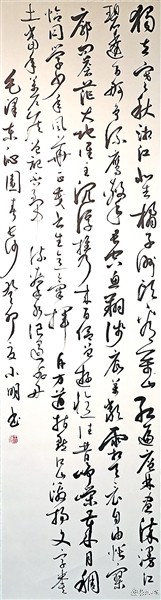 独立寒秋湘江北去橘子洲头看万山红遍层林尽染漫江
碧透百舸争流鹰击长空鱼翔浅底万类霜天竞自由怅寥
廓问苍茫大地谁主沉浮携来百侣曾游忆往昔峥嵘岁月稠
恰同学少年风华正茂书生意气挥斥方遒指点江山激扬文字粪
土当年万户侯曾记否到中流击水浪遏飞舟
毛泽东沁园春长沙癸卯夏小明书